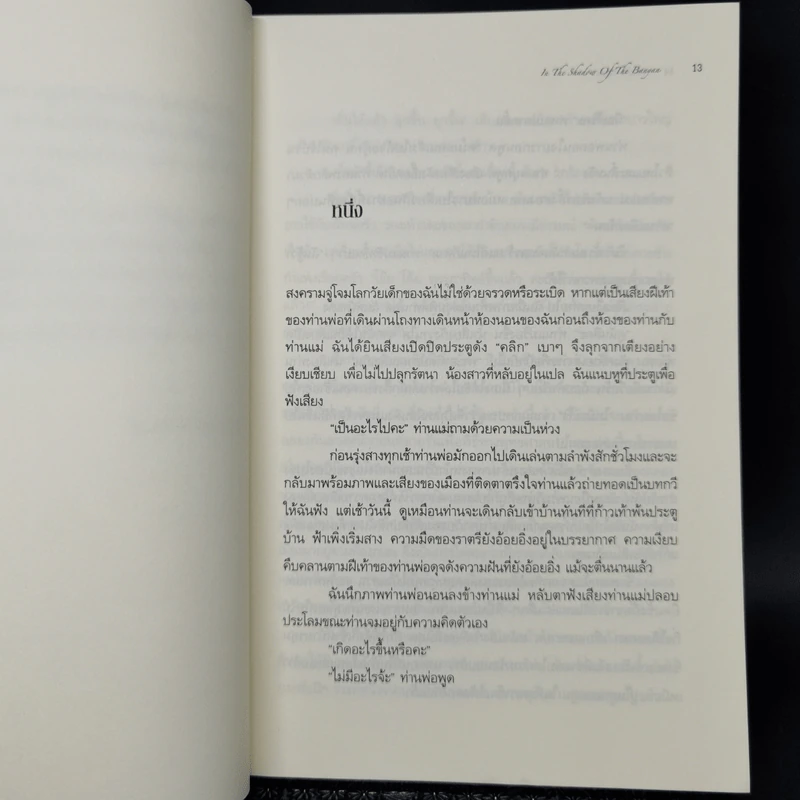 In The Shadow Of The Banyan 13
หนึ่ง
สงครามจู่โจมโลกวัยเด็กของฉันไม่ใช่ด้วยจรวดหรือระเบิด หากแต่เป็นเสียงฝีเท้า
ของท่านพ่อที่เดินผ่านโถงทางเดินหน้าห้องนอนของฉันก่อนถึงห้องของท่านกับ
ท่านแม่ ฉันได้ยินเสียงเปิดปิดประตูดัง “คลิก” เบาๆ จึงลุกจากเตียงอย่าง
เงียบเชียบ เพื่อไม่ไปปลุกรัตนา น้องสาวที่หลับอยู่ในเปล ฉันแนบหูที่ประตูเพื่อ
ฟังเสียง
“เป็นอะไรไปคะ” ท่านแม่ถามด้วยความเป็นห่วง
ก่อนรุ่งสางทุกเช้าท่านพ่อมักออกไปเดินเล่นตามลำพังสักชั่วโมงและจะ
กลับมาพร้อมภาพและเสียงของเมืองที่ติดตาตรึงใจท่านแล้วถ่ายทอดเป็นบทกวี
ให้ฉันฟัง แต่เช้าวันนี้ ดูเหมือนท่านจะเดินกลับเข้าบ้านทันทีที่ก้าวเท้าพ้นประตู
บ้าน ฟ้าเพิ่งเริ่มสาง ความมืดของราตรียังอ้อยอิ่งอยู่ในบรรยากาศ ความเงียบ
คืบคลานตามฝีเท้าของท่านพ่อดุจดังความฝันที่ยังอ้อยอิ่ง แม้จะตื่นนานแล้ว
ฉันนึกภาพท่านพ่อนอนลงข้างท่านแม่ หลับตาฟังเสียงท่านแม่ปลอบ
ประโลมขณะท่านจมอยู่กับความคิดตัวเอง
“เกิดอะไรขึ้นหรือคะ”
“ไม่มีอะไรจ้ะ” ท่านพ่อพูด